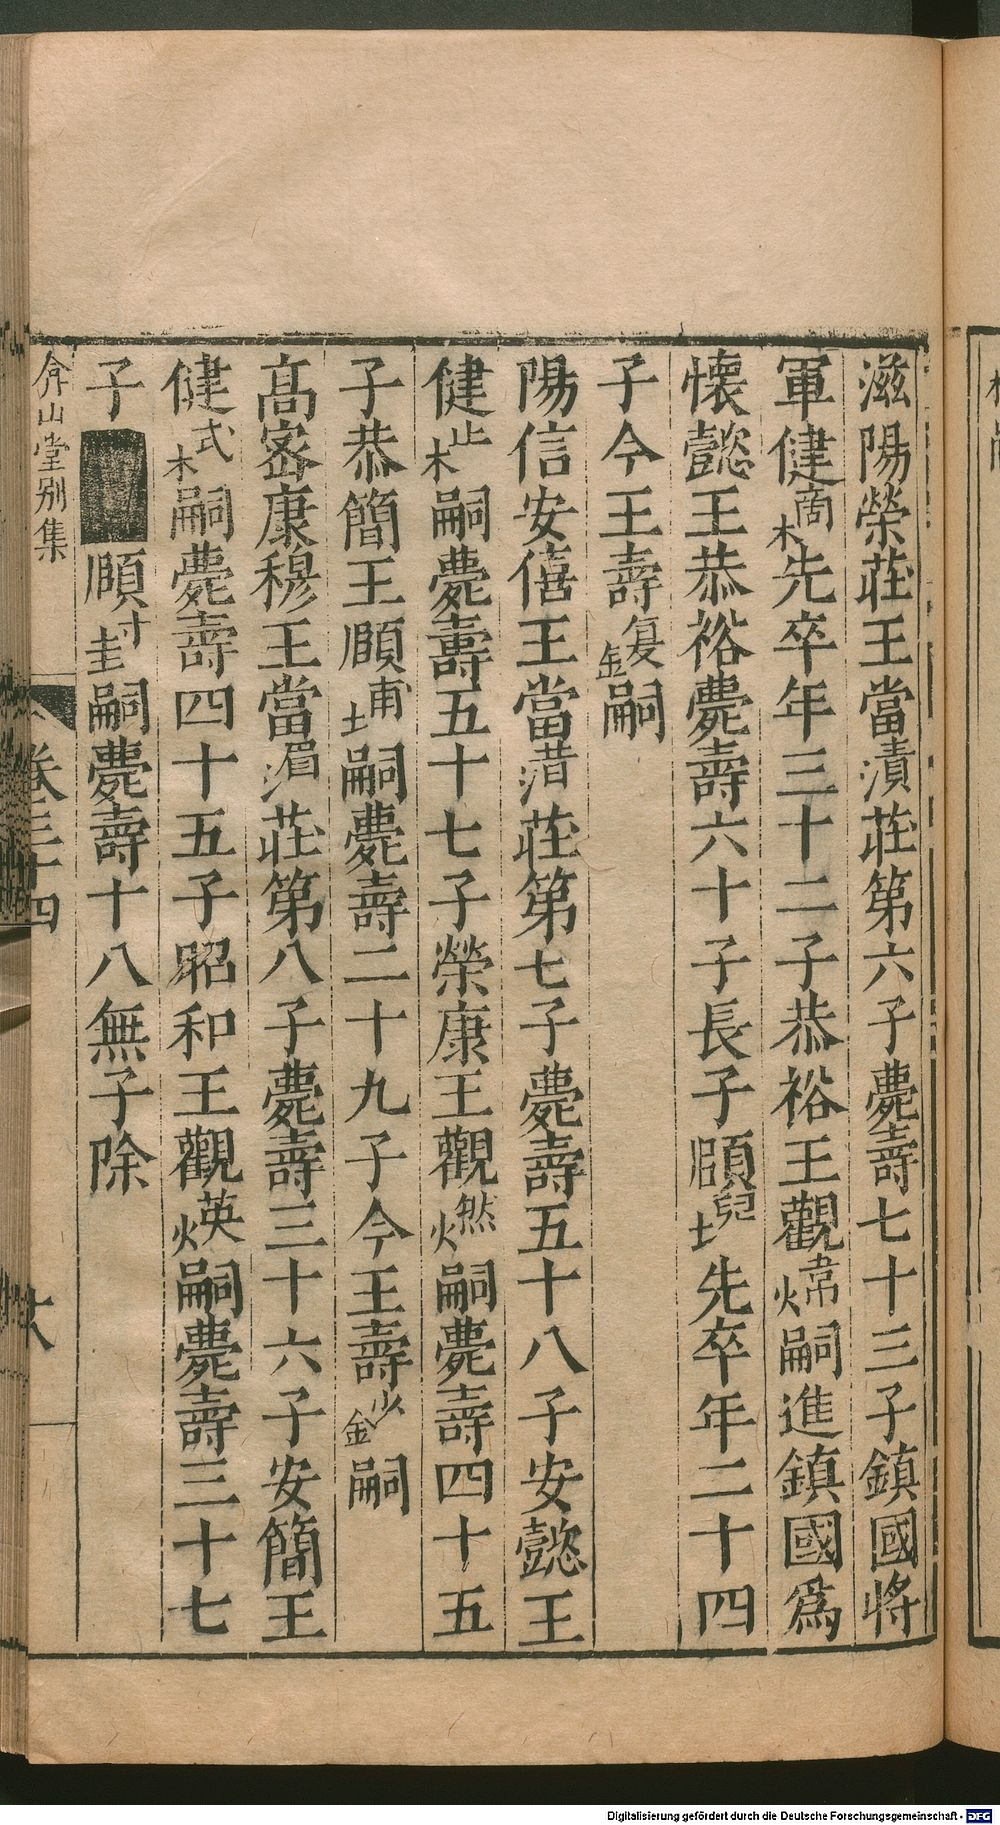 滋陽榮莊王當漬莊第六子薨壽七十三子鎮國將
軍健商木先卒年三十二子恭裕王觀韋火嗣進鎮國爲
懷懿王恭裕薨壽六十子長子頤兒土先卒年二十四
子今王壽复金嗣
陽信安僖王當㳻莊第七子薨壽五十八子安懿王
健止木嗣薨壽五十七子榮康王觀然火嗣薨壽四十五
子恭簡王頤甫土嗣薨壽二十九子今王壽少金嗣
高密康穆王當湄莊第八子薨壽三十六子安簡王
健式木嗣薨壽四十五子昭和王觀英火嗣薨壽三十七
子頤寸圭嗣薨壽十八無子除
弇山堂別集
卷三十四
Digitalisierung gefördert durch die Deutsche Forschungsgemeinschaft - DFG